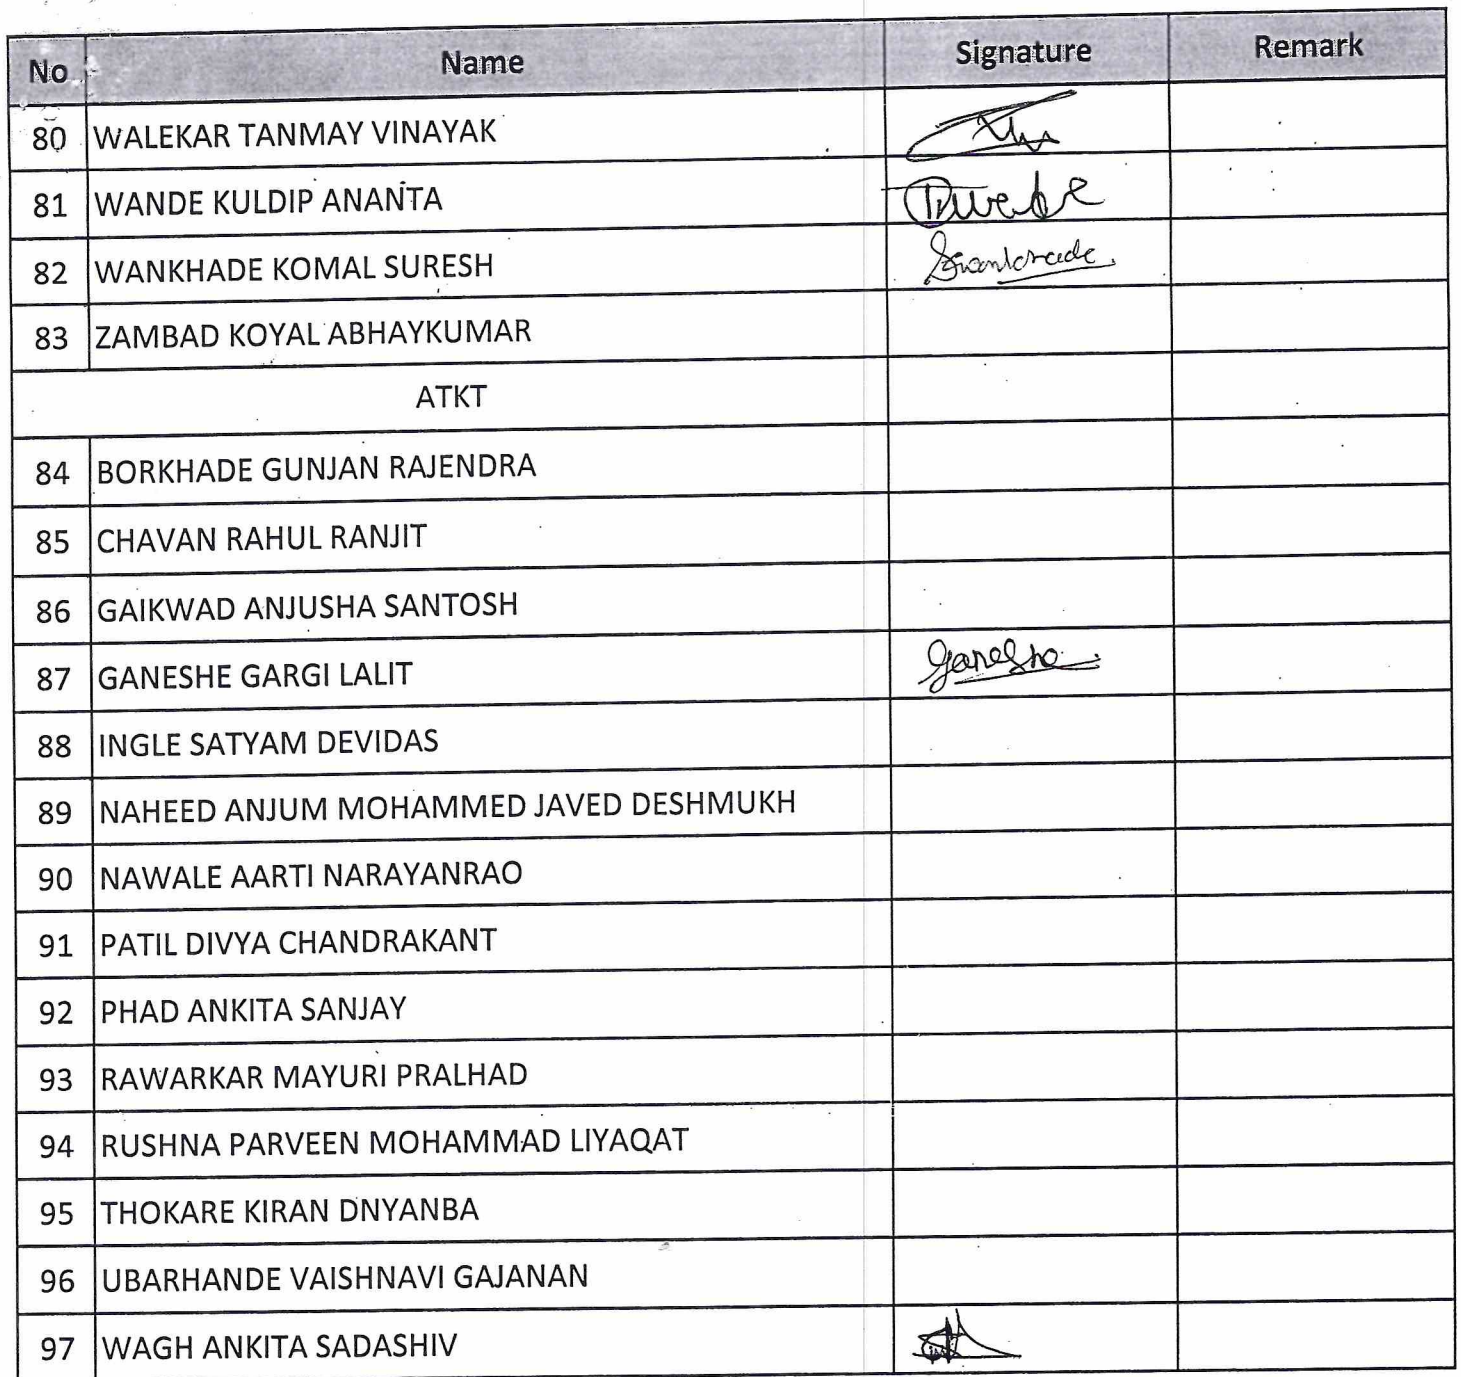 No Name Signature Remark
80 WALEKAR TANMAY VINAYAK
81 WANDE KULDIP ANANTA
82 WANKHADE KOMAL SURESH
83 ZAMBAD KOYAL ABHAYKUMAR
ATKT
84 BORKHADE GUNJAN RAJENDRA
85 CHAVAN RAHUL RANJIT
86 GAIKWAD ANJUSHA SANTOSH
87 GANESHE GARGI LALIT
88 INGLE SATYAM DEVIDAS
89 NAHEED ANJUM MOHAMMED JAVED DESHMUKH
90 NAWALE AARTI NARAYANRAO
91 PATIL DIVYA CHANDRAKANT
92 PHAD ANKITA SANJAY
93 RAWARKAR MAYURI PRALHAD
94 RUSHNA PARVEEN MOHAMMAD LIYAQAT
95 THOKARE KIRAN DNYANBA
96 UBARHANDE VAISHNAVI GAJANAN
97 WAGH ANKITA SADASHIV